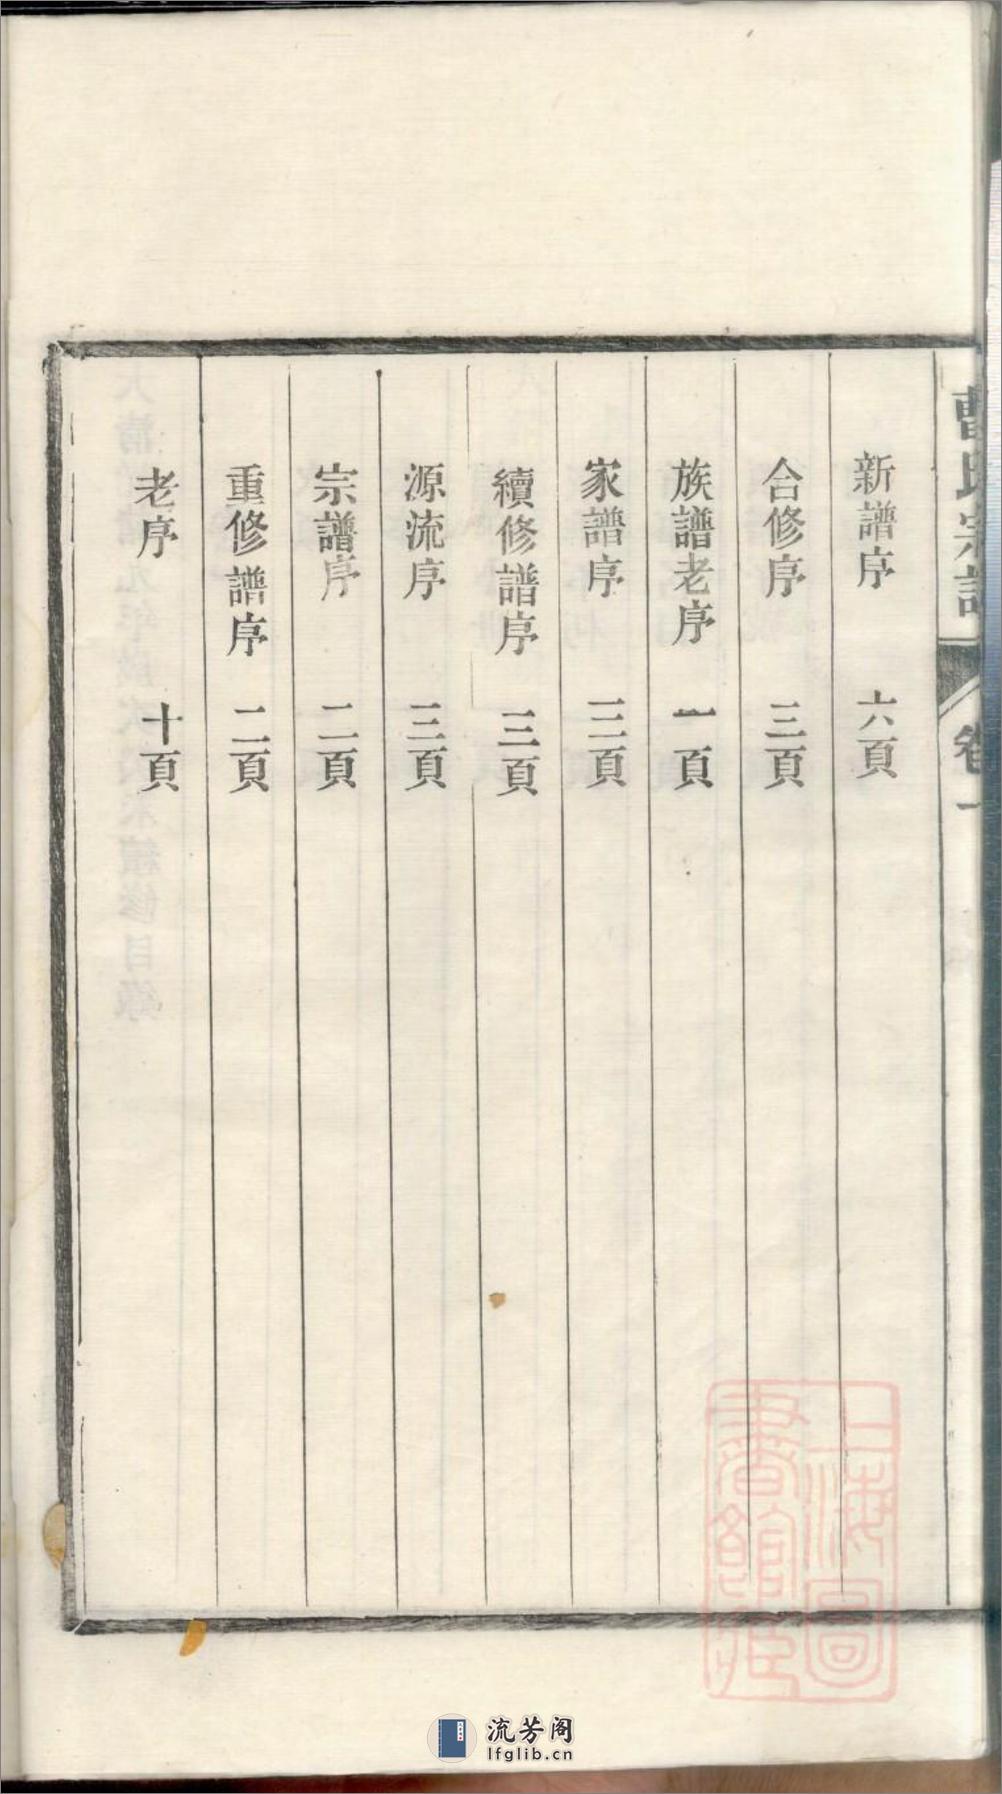 曹氏宗譜
卷一
新譜序　六頁
合修序　三頁
族譜老序　一頁
家譜序　三頁
續修譜序　三頁
源流序　三頁
宗譜序　二頁
重修譜序　二頁
老序　十頁
上海圖
書館藏
流芳阁
lfglib.cn